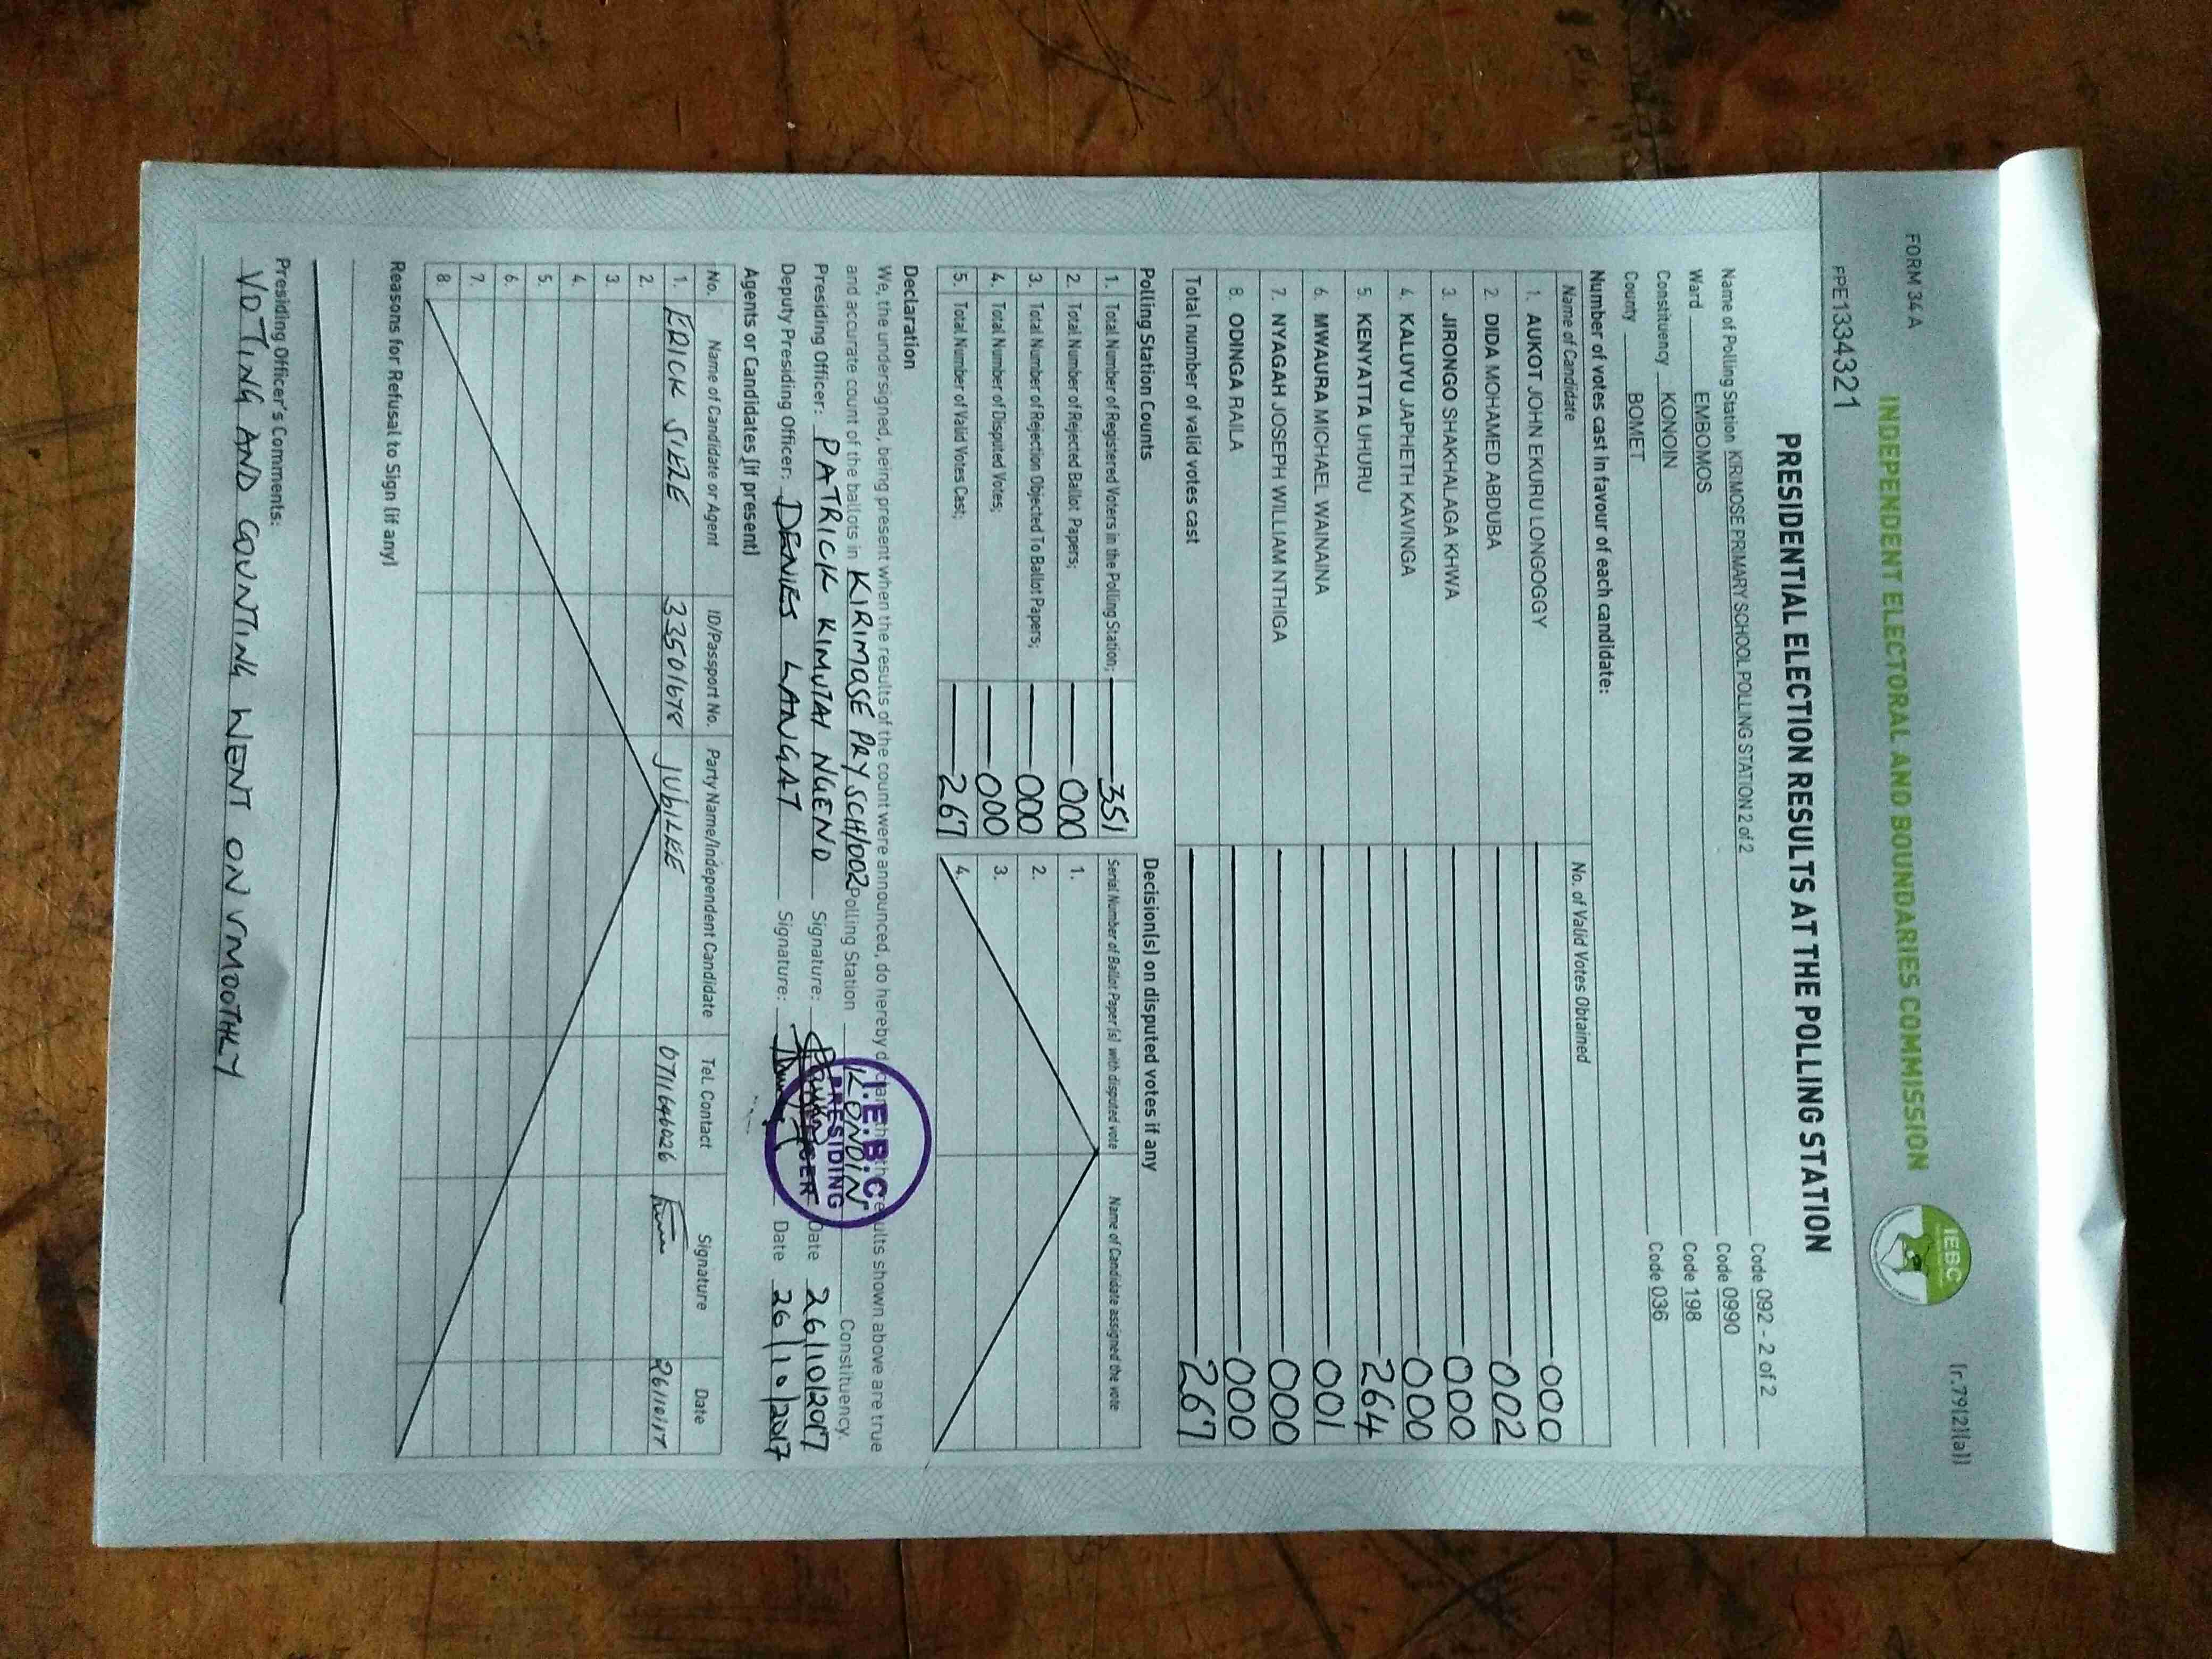 FORM 34 A
(r.79(2)(a))
INDEPENDENT ELECTORAL AND BOUNDARIES COMMISSION
IEBC
PPE1334321
PRESIDENTIAL ELECTION RESULTS AT THE POLLING STATION
Name of Polling Station KIRIMOSE PRIMARY SCHOOL POLLING STATION 2 of 2 Code 092 - 2 of 2
Ward EMBOMOS Code 0990
Constituency KONOIN Code 198
County BOMET Code 036
Number of votes cast in favour of each candidate:
Name of Candidate No. of Valid Votes Obtained
1. AUKOT JOHN EKURU LONGOGGY 000
2. DIDA MOHAMED ABDUBA 002
3. JIRONGO SHAKHALAGA KHWA 000
4. KALUYU JAPHETH KAVINGA 000
5. KENYATTA UHURU 264
6. MWAURA MICHAEL WAINAINA 001
7. NYAGAH JOSEPH WILLIAM NTHIGA 000
8. ODINGA RAILA 000
Total number of valid votes cast 267
Polling Station Counts
1. Total Number of Registered Voters in the Polling Station; 351
2. Total Number of Rejected Ballot Papers; 000
3. Total Number of Rejection Objected To Ballot Papers; 000
4. Total Number of Disputed Votes; 000
5. Total Number of Valid Votes Cast; 267
Decision(s) on disputed votes if any
Serial Number of Ballot Paper (s) with disputed vote Name of Candidate assigned the vote
1.
2.
3.
4.
Declaration
We, the undersigned, being present when the results of the count were announced, do hereby declare that the results shown above are true
and accurate count of the ballots in KIRIMOSE PRY SCH/002 Polling Station KONOIN Constituency.
Presiding Officer: PATRICK KIMUTAI NGENO Signature: Date 26/10/2017
Deputy Presiding Officer: DENIES LANGAT Signature: Date 26/10/2017
I.E.B.C
PRESIDING
Agents or Candidates (if present)
No. Name of Candidate or Agent ID/Passport No. Party Name/Independent Candidate Tel. Contact Signature Date
1. ERICK 33501678 JUBILEE 0711646026 26/10/17
2.
3.
4.
5.
6.
7.
8.
Reasons for Refusal to Sign (if any)
Presiding Officer's Comments:
VOTING AND COUNTING WENT ON SMOOTHLY